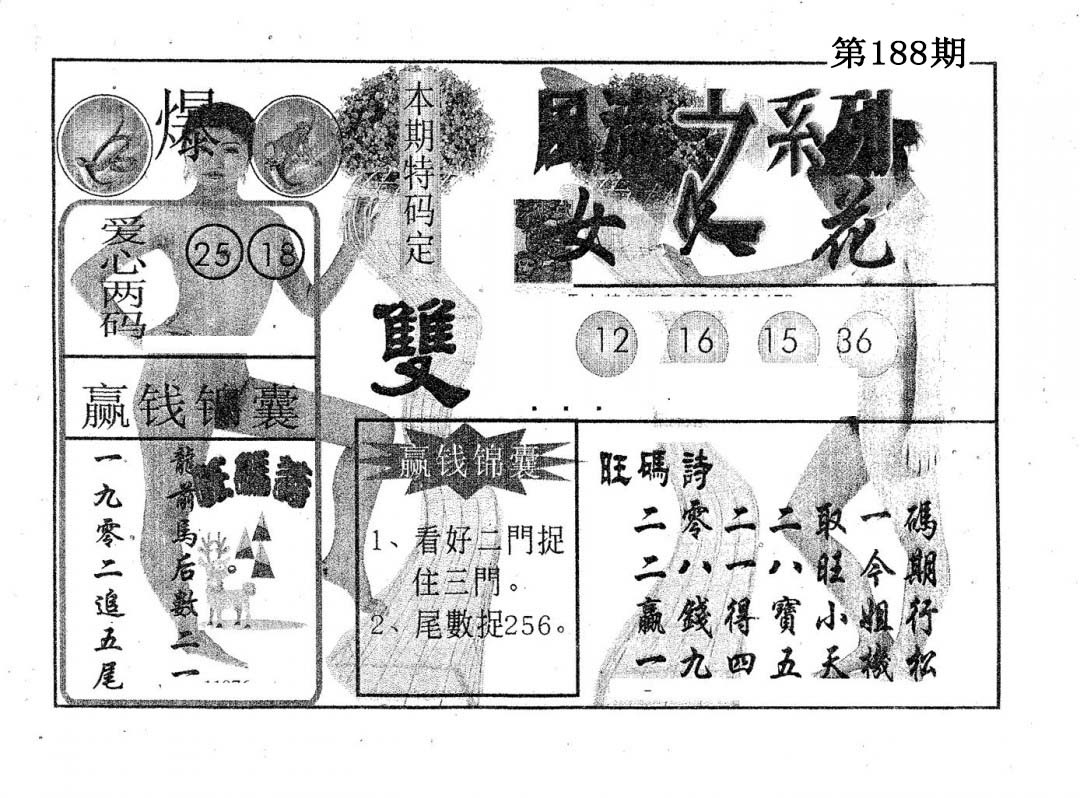 第188期
爆
爱心两码
25 18
赢钱锦囊
龍前馬后數二一
一九零二追五尾
本期特码定
雙
系列
女人花
12 16 15 36
赢钱锦囊
1、看好二門捉
住三門。
2、尾數捉256。
旺碼詩
二零二二取一碼
二八一八旺今期
赢錢得寶小姐行
一九四五天機松